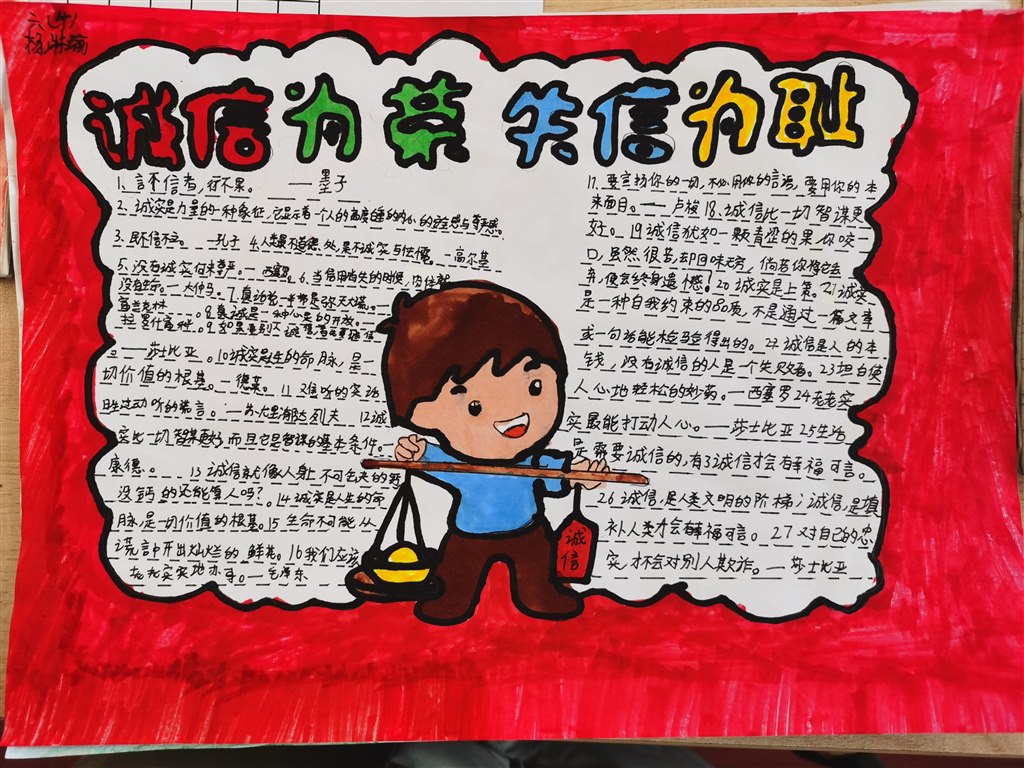 诚信为荣 失信为耻
1、言不信者,行不果。 ——墨子
2、诚实是力量的一种象征,它显示着一个人的高度自重和内心的安全感与尊严感
3、民不信不立。 —孔子 4.人类最不道德处,是不诚实与怯懦。—高尔基
5、没有诚实何来尊严。—西塞罗。6、当信用消失的时候,肉体就
没有生命。—大仲马。
富兰克林
—莎士比亚。10诚实是人生的命脉,是一
切价值的根基。—德莱。 11 难听的实话
胜过动听的谎言。 12诚
实比一切智谋更好而且它是智谋的基本条件。—
康德。 13诚信就像人身上不可
没钙的还能算人吗?14诚实是人生的命
脉,是一切价值的根基。15生命不可能从
谎言中开出灿烂的 鲜花。16我们应该
老老实实地办事。—毛泽东
17、要宣扬你的一切,不必用你的言语,要用你的本
来面目。—卢梭 18、诚信比一切智谋更
好。19诚信犹如一颗青涩的果,你咬一
口,虽然很苦,却回味无穷,倘若你将它舍
弃,便会终身遗憾!20诚实是上策。21诚实
是一种自我约束的品质,不是通过一篇文章
或一句话能检验得出的。22诚信是人的本
钱,没有诚信的人是一个失败者。23坦白使
人心地轻松的妙药。—西塞罗 24老老实
实最能打动人心。—莎士比亚 25生活
是需要诚信的,有了诚信才会有幸福可言。
26诚信,是人类文明的阶梯;诚信,是填
补人类才会有幸福可言。27对自己的忠
实,才不会对别人欺诈。—莎士比亚
诚信